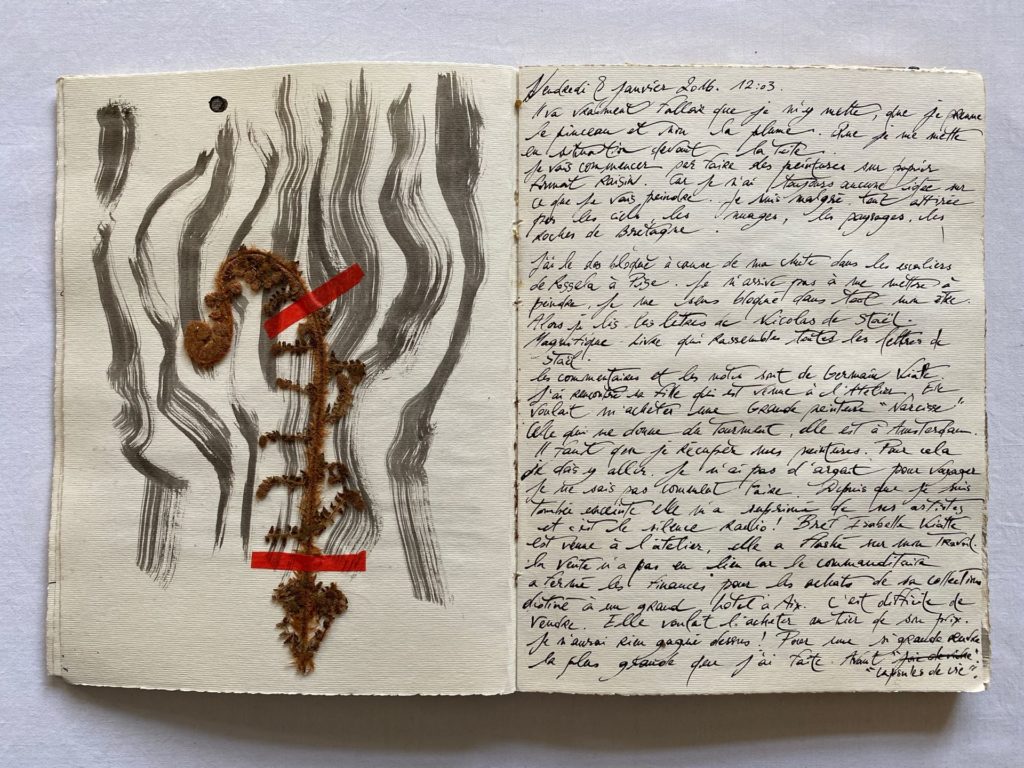 Vendredi 8 Janvier 2016. 12:03.
Il va vraiment falloir que je m'y mette, que je prenne
le pinceau et non la plume. Que je me mette
en situation devant la toile.
Je vais commencer par faire des peintures sur papier
format Raisin. Car je n'ai toujours aucune idée sur
ce que je vais peindre. Je suis malgré tout attirée
par les ciels, les nuages, les paysages, les
Roches de Bretagne.
J'ai le dos bloqué à cause de ma chute dans les escaliers
de Rossela à Pise. Je n'arrive pas à me mettre à
peindre. Je me sens bloqué dans tout mon être.
Alors je lis les lettres de Nicolas de Staël.
Magnifique livre qui rassemble toutes les lettres de
Staël.
les commentaires et les notes sont de Germain Viatte
J'ai rencontré sa fille qui est venue à l'Atelier. Elle
voulait m'acheter une Grande peinture "Narcisse"
Celle qui me donne du tourment, elle est à Amsterdam.
Il faut que je Récupère mes peintures. Pour cela
je dois y aller. Je n'ai pas d'argent pour voyager
Je ne sais pas comment faire. Depuis que je suis
tombée enceinte elle m'a supprimé de ses artistes
et c'est le silence Radio! Bref Isabella Viatte
est venue à l'atelier, elle a flashé sur mon Travail.
la vente n'a pas eu lieu car le commanditaire
a fermé les finances pour les achats de sa collection
destiné à un grand hôtel à Aix. C'est difficile de
vendre. Elle voulait l'acheter au tier de son prix.
Je n'aurai rien gagné dessus! Pour une si grande
la plus grande que j'ai faite. Avant
"Capsules de vie".